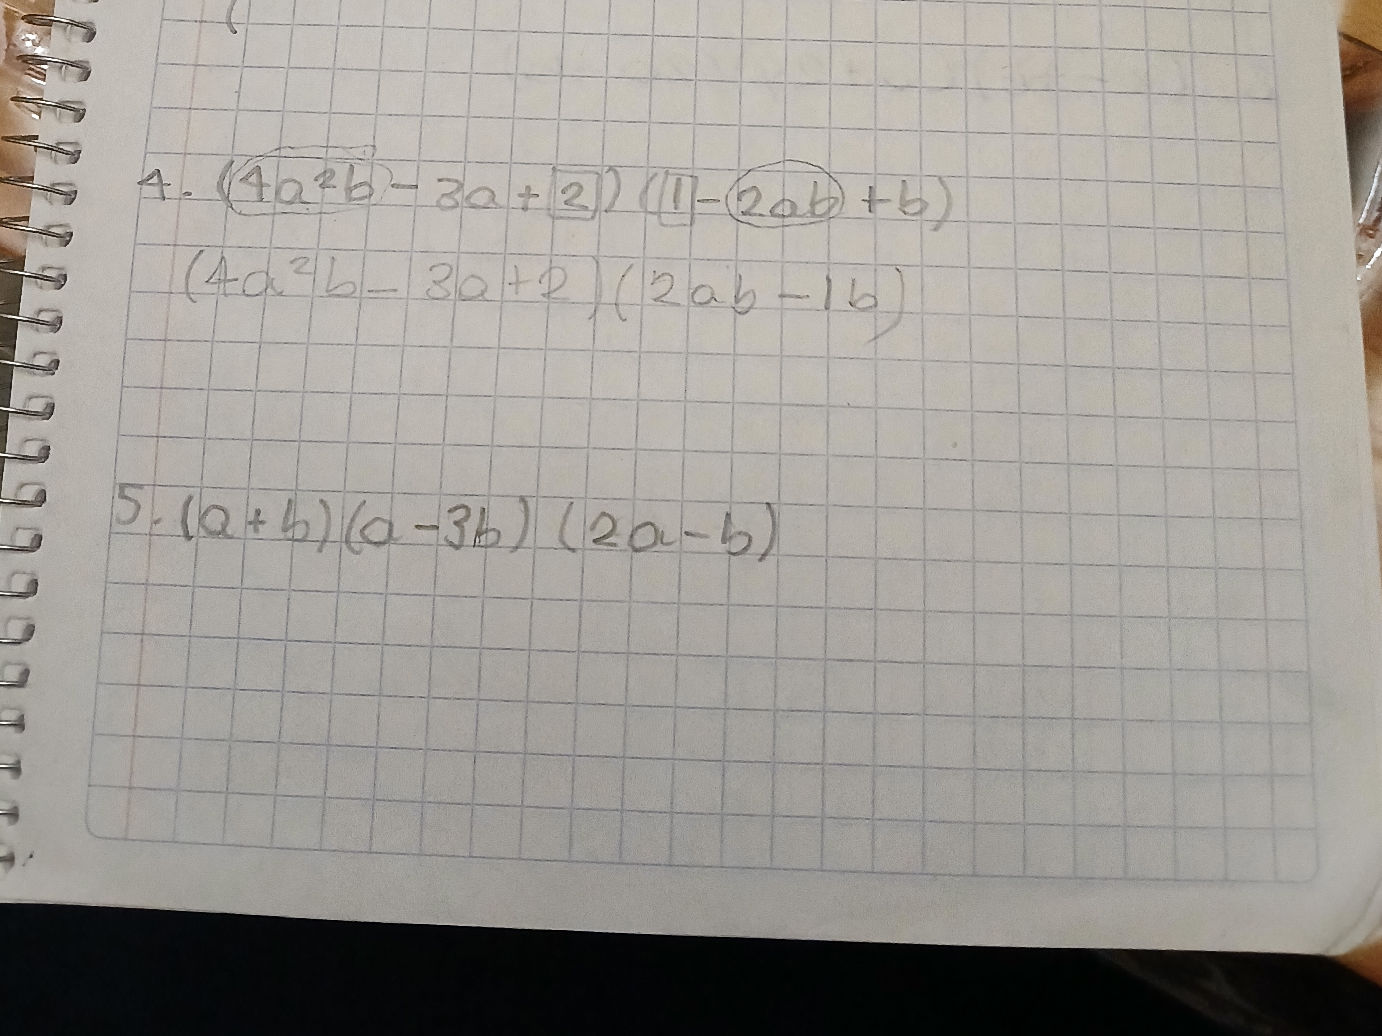 4. (4a²b - 3a + 2) (1 - 2ab + b)
(4a²b - 3a + 2) (2ab - 1b)
5. (a + b) (a - 3b) (2a - b)